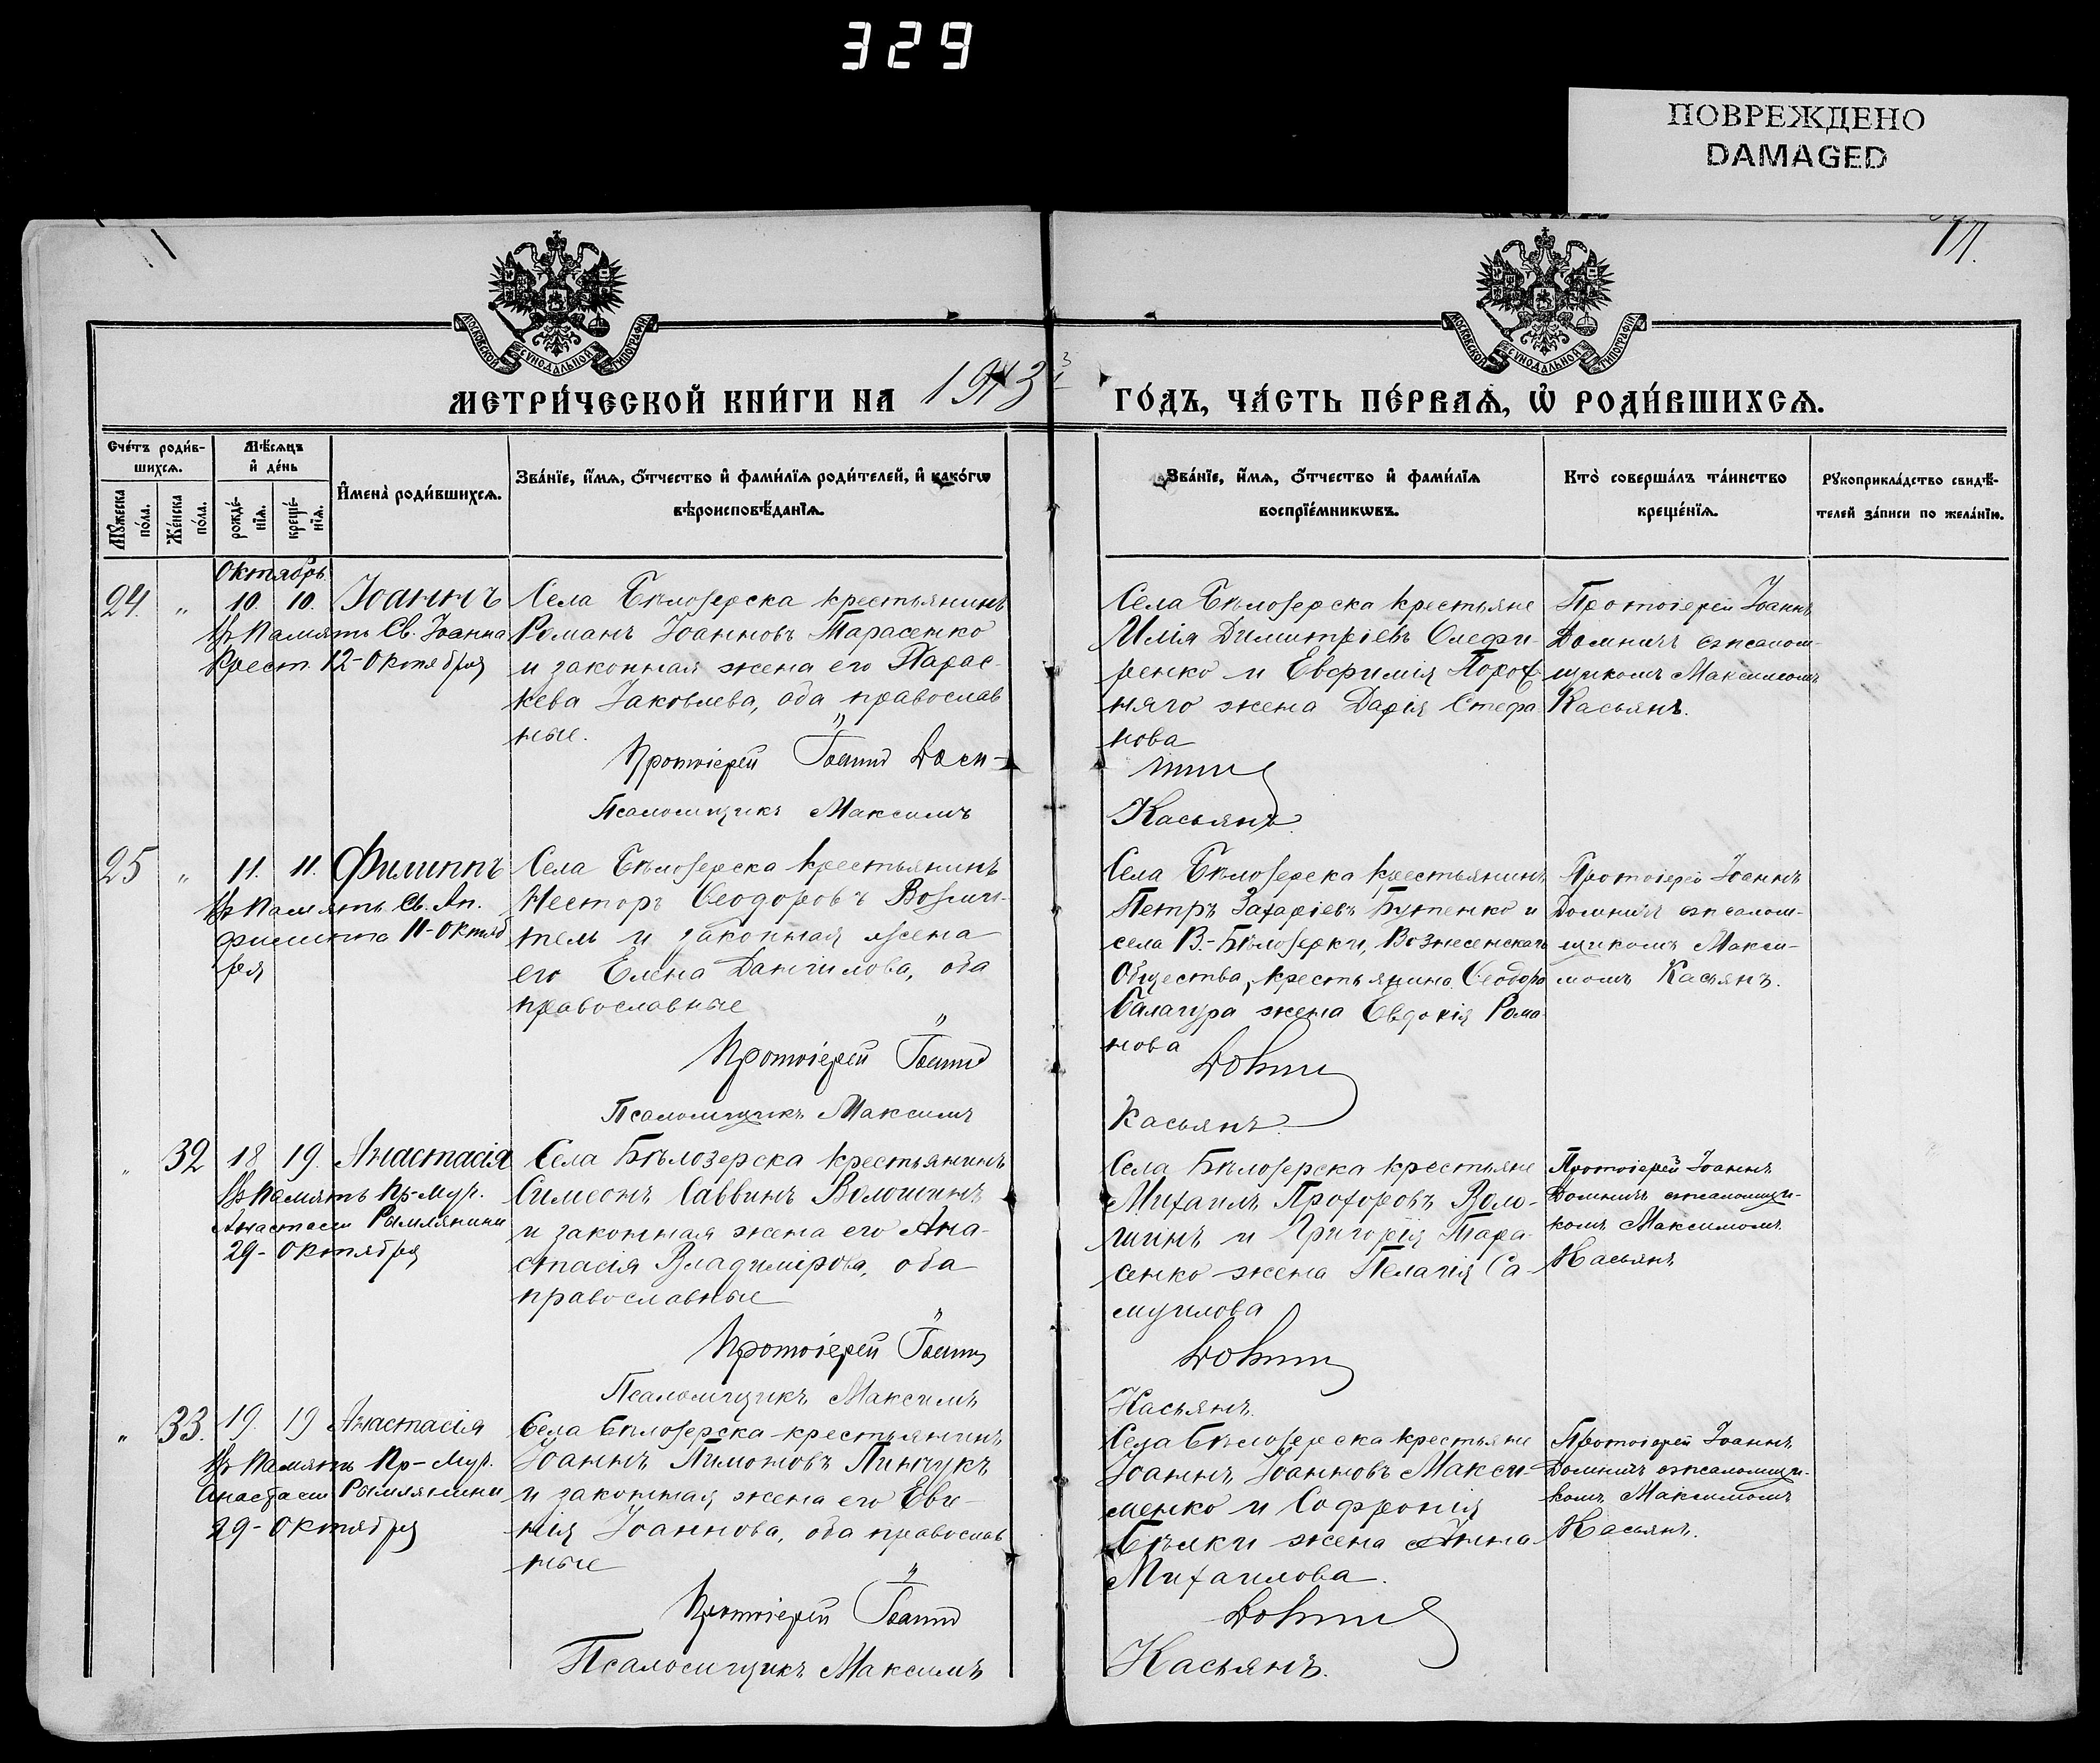 329
ПОВРЕЖДЕНО
DAMAGED
МОСКОВСКОЙ СѴНОДАЛЬНОЙ ТИПОГРАФІИ
МОСКОВСКОЙ СѴНОДАЛЬНОЙ ТИПОГРАФІИ
МЕТРИ́ЧЕСКОЙ КНИ́ГИ НА 1913 ГО́ДЪ, ЧА́СТЬ ПЕ́РВАѦ, Ѡ҆ РОДИ́ВШИХСѦ.
Сче́тъ роди́в-
шихсѧ.
Мꙋ́жеска по́ла.
Же́нска по́ла.
Мѣ́сѧцъ
и҆ де́нь
рожде́-
нїѧ.
креще́-
нїѧ.
И҆мена̀ роди́вшихсѧ.
Зва́нїе, и҆́мѧ, ѻ҆́тчество и҆ фами́лїѧ роди́телей, и҆ како́гѡ
вѣроисповѣ́данїѧ.
Зва́нїе, и҆́мѧ, ѻ҆́тчество и҆ фами́лїѧ
воспрїе́мникѡвъ.
Кто̀ соверша́лъ та́инство
креще́нїѧ.
Рꙋкоприкла́дство свидѣ́-
телей за́писи по жела́нїю.
Октябрь
24. " 10. 10. Іоаннъ
Въ память Св. Іоанна
Крест. 12-Октября
Села Бѣлозерска крестьянинъ
Романъ Іоанновъ Тарасенко
и законная жена его Парас-
кева Іаковлева, оба православ
ные.
Протоіерей Іоаннъ
Псаломщикъ Максимъ
Села Бѣлозерска крестьяне
Илія Димитріевъ Олефи-
ренко и Евфимія
няго жена Дарія Стефа
нова
Касьянъ.
Протоіерей Іоаннъ
съ псалом-
щикомъ Максимомъ
Касьянъ.
25 " 11. 11. Филиппъ
Въ память Св. Ап.
Филиппа 11-Октяб
ря
Села Бѣлозерска крестьянинъ
Несторъ Ѳеодоровъ
и законная жена
его Елена Даніилова, оба
православные
Протоіерей Іоаннъ
Псаломщикъ Максимъ
Села Бѣлозерска крестьянинъ
Петръ Захаріевъ Бутенко и
села В.-Бѣлозерки, Вознесенскаго
Общества, крестьянина Ѳеодора
Балагура жена Евдокія Рома
нова
Касьянъ.
Протоіерей Іоаннъ
съ псалом-
щикомъ Макси-
момъ Касьянъ.
" 32 18 19. Анастасія
Въ память Пр-муч.
Анастасіи Римлянини
29-Октября
Села Бѣлозерска крестьянинъ
Симеонъ Саввинъ Волошинъ
и законная жена его Ана-
стасія Владимірова, оба
православные
Протоіерей Іоаннъ
Псаломщикъ Максимъ
Села Бѣлозерска крестьяне
Михаилъ Прохоровъ Воло-
шинъ и Григорія Тара-
сенко жена Пелагія Са-
муилова
Касьянъ.
Протоіерей Іоаннъ
съ псаломщи-
комъ Максимомъ
Касьянъ
" 33. 19. 19 Анастасія
Въ память Пр-муч.
Анастасіи Римлянини
29-Октября
Села Бѣлозерска крестьянинъ
Іоаннъ Пимоновъ Пинчукъ
и законная жена его Евге-
нія Іоаннова, оба православ
ные
Протоіерей Іоаннъ
Псаломщикъ Максимъ
Села Бѣлозерска крестьяне
Іоаннъ Іоанновъ Макси-
менко и Софронія
Бѣлки жена Анна
Михаилова.
Касьянъ.
Протоіерей Іоаннъ
съ псаломщи-
комъ Максимомъ
Касьянъ.